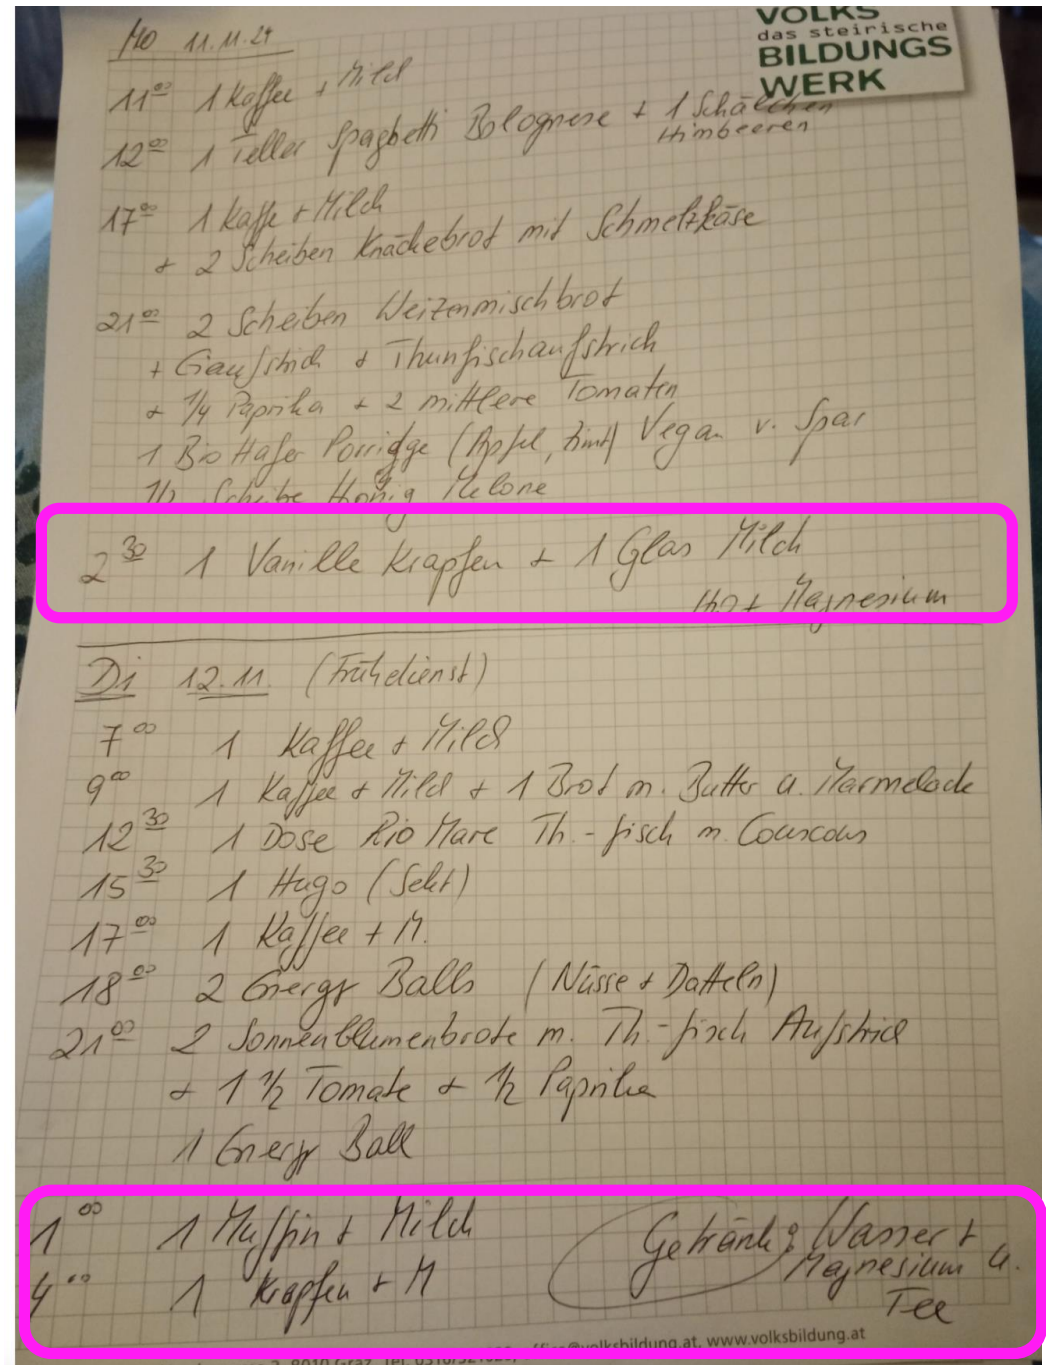 VOLKS
das steirische
BILDUNGS
WERK
Mo 11.11.24
11⁰⁰ 1 Kaffee + Milch
12⁰⁰ 1 Teller Spaghetti Bolognese + 1 Schälchen
Himbeeren
17⁰⁰ 1 Kaffe + Milch
+ 2 Scheiben Knäckebrot mit Schmelzkäse
21⁰⁰ 2 Scheiben Weizenmischbrot
+ Thunfischaufstrich
+ 1/4 Paprika + 2 mittlere Tomaten
1 Bio Hafer Porridge (Apfel, Zimt) Vegan v. Spar
1/2 Scheibe Honig Melone
2³⁰ 1 Vanille Krapfen + 1 Glas Milch
+ Magnesium
Di 12.11. (Frühdienst)
7⁰⁰ 1 Kaffee + Milch
9⁰⁰ 1 Kaffee + Milch + 1 Brot m. Butter u. Marmelade
12³⁰ 1 Dose Rio Mare Th.-fisch m. Couscous
15³⁰ 1 Hugo (Sekt)
17⁰⁰ 1 Kaffee + M.
18⁰⁰ 2 Energy Balls (Nüsse + Datteln)
21⁰⁰ 2 Sonnenblumenbrote m. Th.-fisch Aufstrich
+ 1 1/2 Tomate + 1/2 Paprika
1 Energy Ball
1⁰⁰ 1 Muffin + Milch
4⁰⁰ 1 Krapfen + M
Getränke: Wasser +
Magnesium u.
Tee
8010 Graz, Tel. office@volksbildung.at, www.volksbildung.at